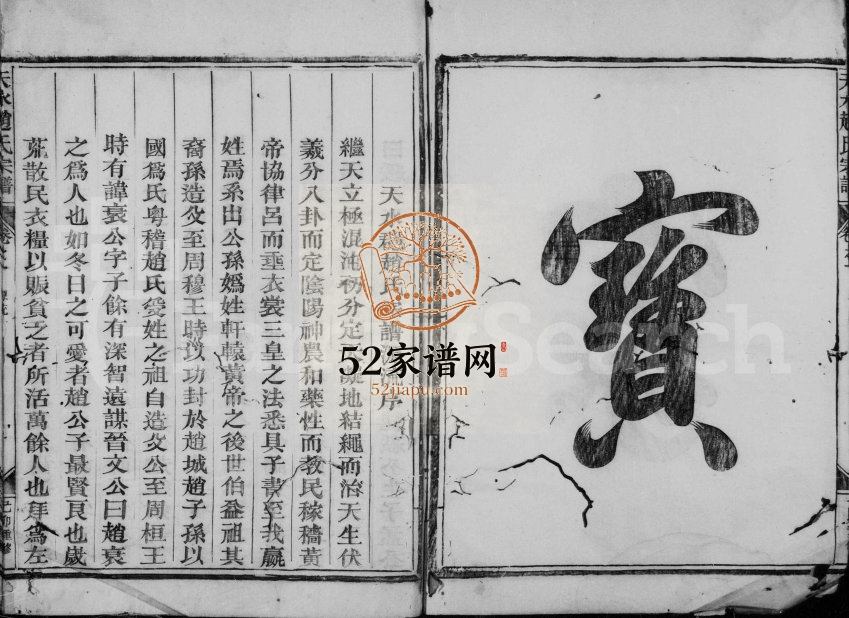 寶
天水趙氏宗譜
天水郡趙氏宗譜 序
繼天立極混沌初分定 地結繩而治天生伏
羲分八卦而定陰陽神農和藥性而教民稼穡黃
帝協律呂而垂衣裳三皇之法悉具于書至我嬴
姓焉系出公孫嬀姓軒轅黃帝之後世伯益祖其
裔孫造父至周穆王時以功封於趙城趙子孫以
國爲氏粤稽趙氏受姓之祖自造父公至周桓王
時有諱衰公字子餘有深智遠謀晉文公曰趙衰
之爲人也如冬日之可愛者趙公子最賢良也歲
荒散民衣糧以賑貧乏者所活萬餘人也拜爲左
天水趙氏宗譜
52家谱网
52jiapu.com
Search